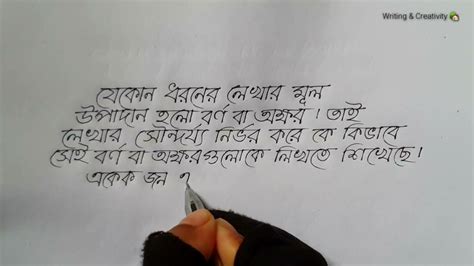 Writing & Creativity
যেকোন ধরনের লেখার মূল
উপাদান হলো বর্ণ বা অক্ষর। তাই
লেখার সৌন্দর্য্য নির্ভর করে কে কিভাবে
সেই বর্ণ বা অক্ষরগুলোকে লিখতে শিখেছে।
একেক জন